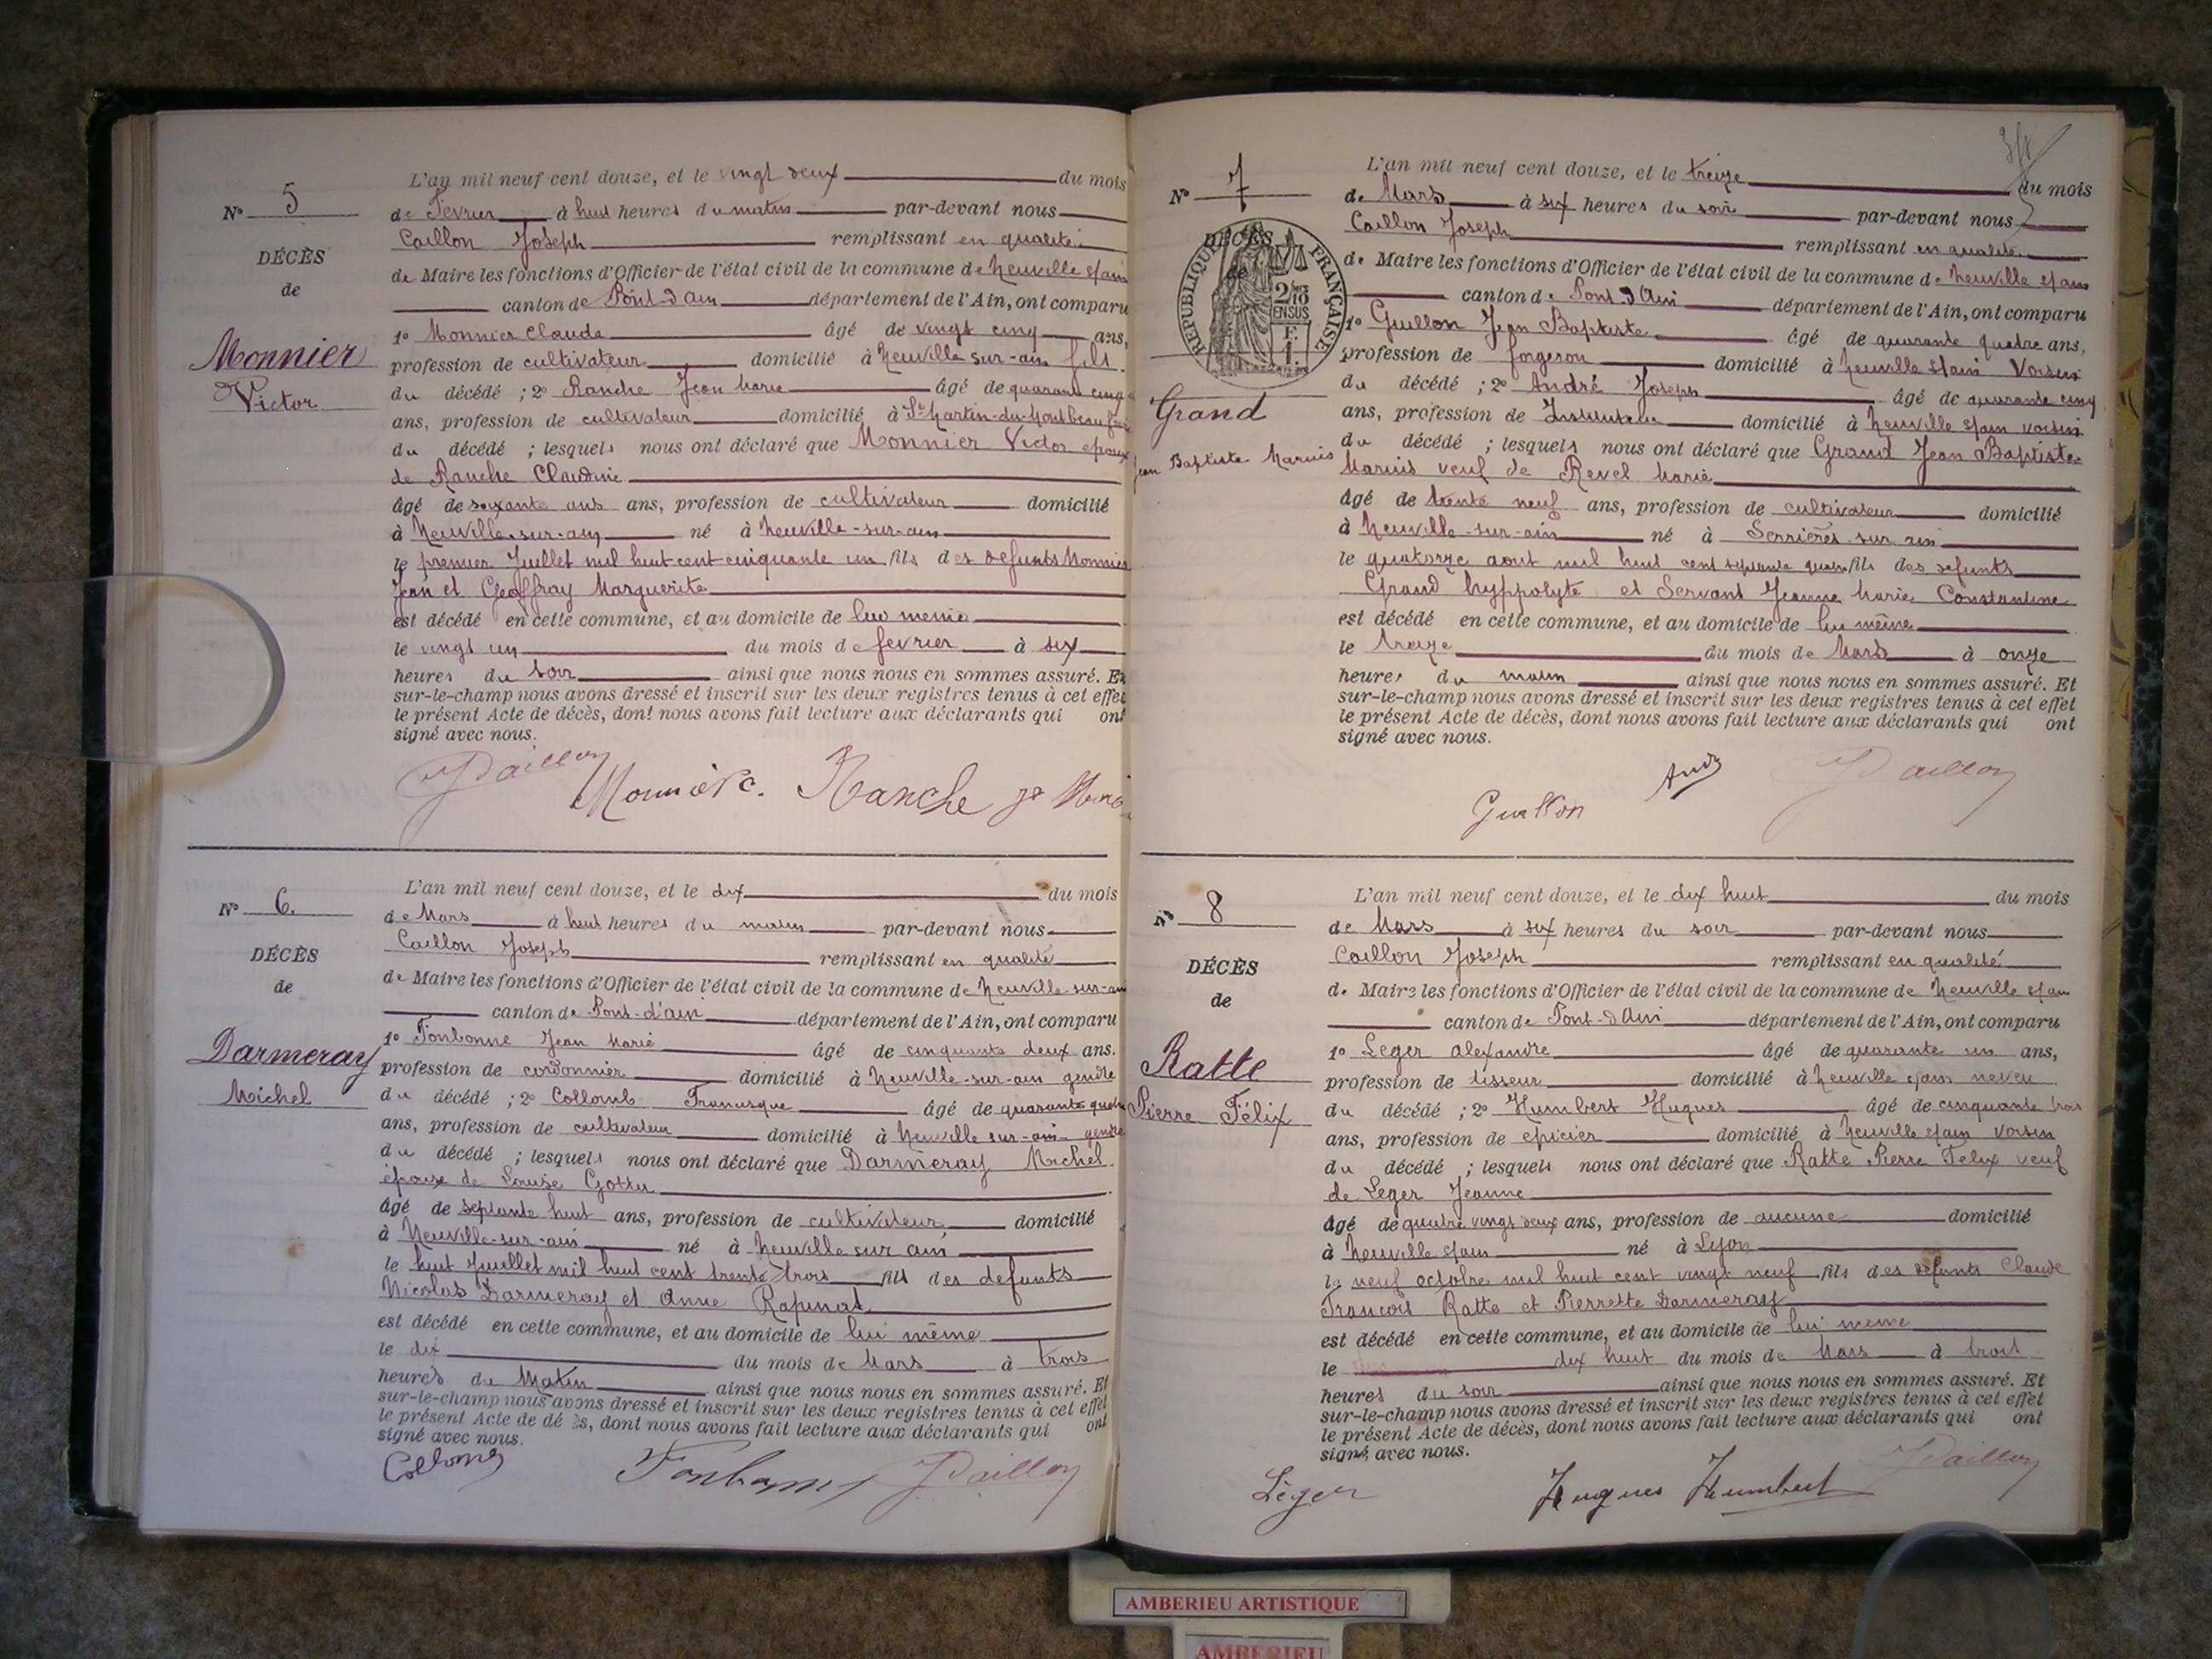 N° 5
DÉCÈS
de
Monnier
Victor
L'an mil neuf cent douze, et le vingt deux du mois
de Fevrier à huit heures du matin par-devant nous
Caillon Joseph remplissant en qualité
de Maire les fonctions d'Officier de l'état civil de la commune de Neuville s/ain
canton de Pont-d'ain département de l'Ain, ont comparu
1° Monnier Claude âgé de vingt cinq ans,
profession de cultivateur domicilié à Neuville-sur-ain fils
du décédé ; 2° Ranche Jean Marie âgé de quarante cinq
ans, profession de cultivateur domicilié à St Martin-du-Mont
du décédé ; lesquels nous ont déclaré que Monnier Victor epoux
de Ranche Claudine
âgé de soixante ans ans, profession de cultivateur domicilié
à Neuville-sur-ain né à Neuville-sur-ain
le premier Juillet mil huit cent cinquante un fils des defunts Monnier
Jean et Geoffray Marguerite
est décédé en cette commune, et au domicile de lui meme
le vingt un du mois de fevrier à six
heures du soir ainsi que nous nous en sommes assuré. Et
sur-le-champ nous avons dressé et inscrit sur les deux registres tenus à cet effet
le présent Acte de décès, dont nous avons fait lecture aux déclarants qui ont
signé avec nous.
JCaillon Monnier c. Ranche
N° 6.
DÉCÈS
de
Darmeray
Michel
L'an mil neuf cent douze, et le dix du mois
de Mars à huit heures du matin par-devant nous
Caillon Joseph remplissant en qualité
de Maire les fonctions d'Officier de l'état civil de la commune de Neuville-sur-ain
canton de Pont-d'ain département de l'Ain, ont comparu
1° Fonbonne Jean Marie âgé de cinquante deux ans.
profession de cordonnier domicilié à Neuville-sur-ain gendre
du décédé ; 2° Collomb Francisque âgé de quarante quatre
ans, profession de cultivateur domicilié à Neuville sur-ain gendre
du décédé ; lesquels nous ont déclaré que Darmeray Michel
époux de Louise Gottu
âgé de septante huit ans, profession de cultivateur domicilié
à Neuville-sur-ain né à Neuville sur ain
le huit Juillet mil huit cent trente trois fils des defunts
Nicolas Darmeray et Anne Rapinat
est décédé en cette commune, et au domicile de lui même
le dix du mois de Mars à trois
heures du Matin ainsi que nous nous en sommes assuré. Et
sur-le-champ nous avons dressé et inscrit sur les deux registres tenus à cet effet
le présent Acte de dé ès, dont nous avons fait lecture aux déclarants qui ont
signé avec nous.
Collomb Fonbonne JCaillon
N° 7
DÉCÈS
de
RÉPUBLIQUE FRANÇAISE
2/10 EN SUS
F.
1.
Grand
Jean Baptiste Marius
L'an mil neuf cent douze, et le treize du mois
de Mars à six heures du soir par-devant nous
Caillon Joseph remplissant en qualité
de Maire les fonctions d'Officier de l'état civil de la commune de Neuville s/ain
canton de Pont d'Ain département de l'Ain, ont comparu
1° Guillon Jean Baptiste âgé de quarante quatre ans,
profession de forgeron domicilié à Neuville s/ain Voisin
du décédé ; 2° André Joseph âgé de quarante cinq
ans, profession de Instituteur domicilié à Neuville s/ain voisin
du décédé ; lesquels nous ont déclaré que Grand Jean Baptiste
Marius veuf de Revel Marie
âgé de trente neuf ans, profession de cultivateur domicilié
à Neuville-sur-ain né à Serrières-sur ain
le quatorze aout mil huit cent septante quatre fils des defunts
Grand hyppolyte et Servant Jeanne Marie Constantine
est décédé en cette commune, et au domicile de lui même
le treize du mois de Mars à onze
heures du matin ainsi que nous nous en sommes assuré. Et
sur-le-champ nous avons dressé et inscrit sur les deux registres tenus à cet effet
le présent Acte de décès, dont nous avons fait lecture aux déclarants qui ont
signé avec nous.
Guillon André JCaillon
N° 8
DÉCÈS
de
Ratte
Pierre Félix
L'an mil neuf cent douze, et le dix huit du mois
de Mars à six heures du soir par-devant nous
Caillon Joseph remplissant en qualité
de Maire les fonctions d'Officier de l'état civil de la commune de Neuville s/ain
canton de Pont-d'Ain département de l'Ain, ont comparu
1° Leger alexandre âgé de quarante un ans,
profession de tisseur domicilié à Neuville s/ain neveu
du décédé ; 2° Humbert Hugues âgé de cinquante trois
ans, profession de epicier domicilié à Neuville s/ain voisin
du décédé ; lesquels nous ont déclaré que Ratte Pierre Felix veuf
de Leger Jeanne
âgé de quatre vingt deux ans, profession de aucune domicilié
à Neuville s/ain né à Lyon
le neuf octobre mil huit cent vingt neuf fils des defunts Claude
François Ratte et Pierrette Darmeray
est décédé en cette commune, et au domicile de lui meme
le dix huit du mois de Mars à trois
heures du soir ainsi que nous nous en sommes assuré. Et
sur-le-champ nous avons dressé et inscrit sur les deux registres tenus à cet effet
le présent Acte de décès, dont nous avons fait lecture aux déclarants qui ont
signé avec nous.
Léger Hugues Humbert JCaillon
AMBERIEU ARTISTIQUE
AMBERIEU